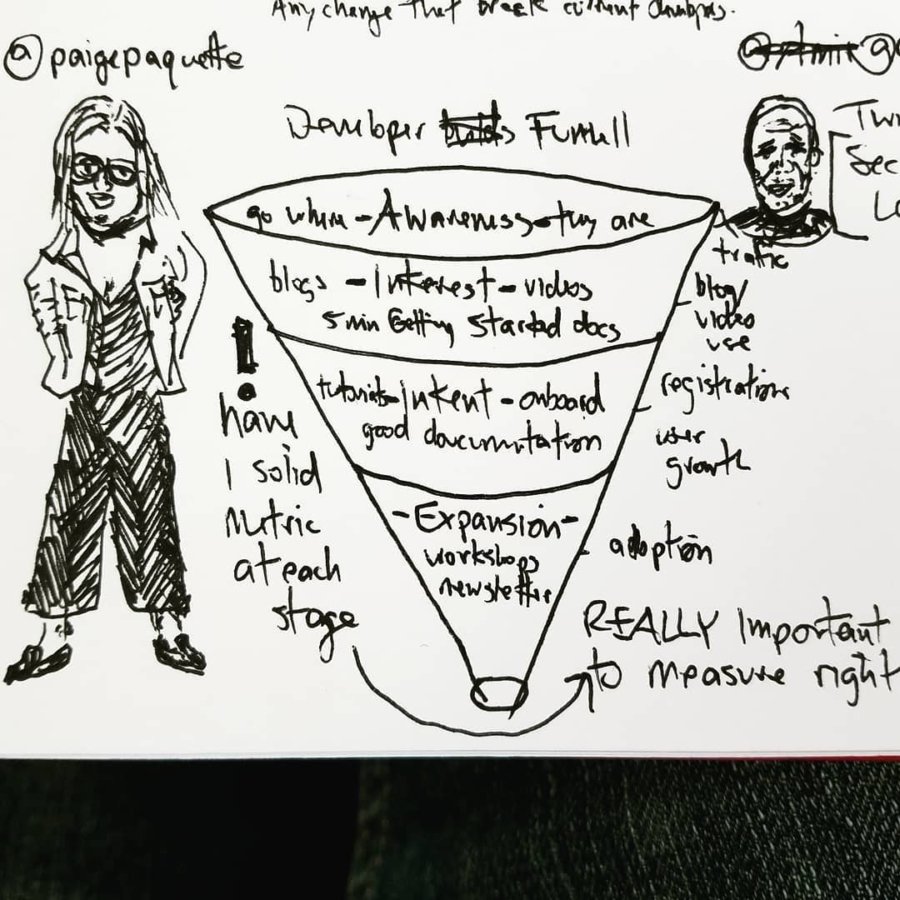 Any change that break current
@paigepaquette
Developer Funnell
go where - Awareness - they are
blogs - Interest - videos
5 min Getting Started docs
tutorials - intent - onboard
good documentation
- Expansion -
workshops
newsletter
!
have
1 solid
metric
at each
stage
trafic
blog/
video
use
registrations
user
growth
adoption
REALLY Important
to measure right
Twi
Sec